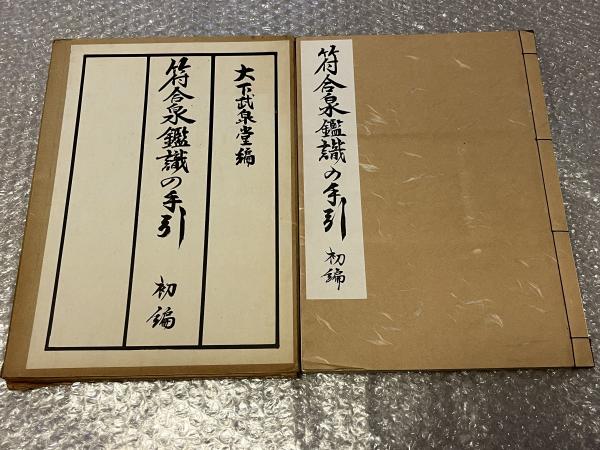 大下武泉堂編
符合泉鑑識の手引 初編
符合泉鑑識の手引 初編